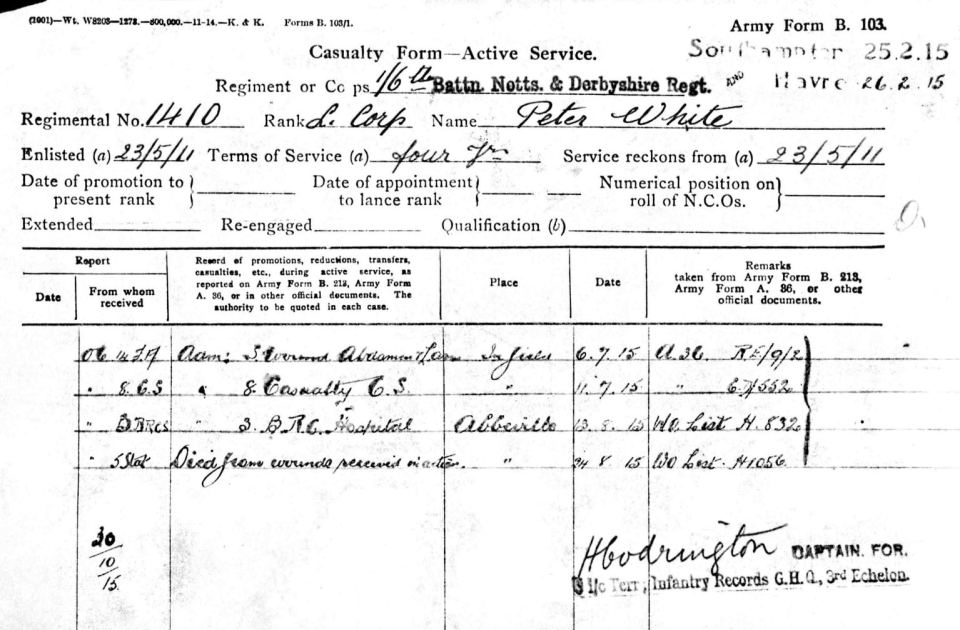 (2001)—Wt. W8203—1273.—800,000.—11-14.—K. & K. Forms B. 103/1.
Army Form B. 103.
Casualty Form—Active Service.
Southampton 25.2.15
Regiment or Corps 1/6th Battn. Notts. & Derbyshire Regt. AND Havre 26.2.15
Regimental No. 1410 Rank L. Corp Name Peter White
Enlisted (a) 23/5/11 Terms of Service (a) four yrs Service reckons from (a) 23/5/11
Date of promotion to present rank
Date of appointment to lance rank
Numerical position on roll of N.C.Os.
Extended Re-engaged Qualification (b)
Report
Date
From whom received
Record of promotions, reductions, transfers, casualties, etc., during active service, as reported on Army Form B. 213, Army Form A. 36, or in other official documents. The authority to be quoted in each case.
Place
Date
Remarks
taken from Army Form B. 213, Army Form A. 36, or other official documents.
OC 14 F.A Adm: S. Wound Abdomen In field 6.7.15 A.36.
" 8. C.S " 8. Casualty C.S. " 11.7.15 "
" 3 BRCS " 3. B.R.C. Hospital Abbeville 13.8.15 WO List H.832
" 5 Stat Died from wounds received in action. " 24 8 15 WO List H1056
30
10
15
HCodrington CAPTAIN. FOR.
I/c Terr; Infantry Records G.H.Q., 3rd Echelon.